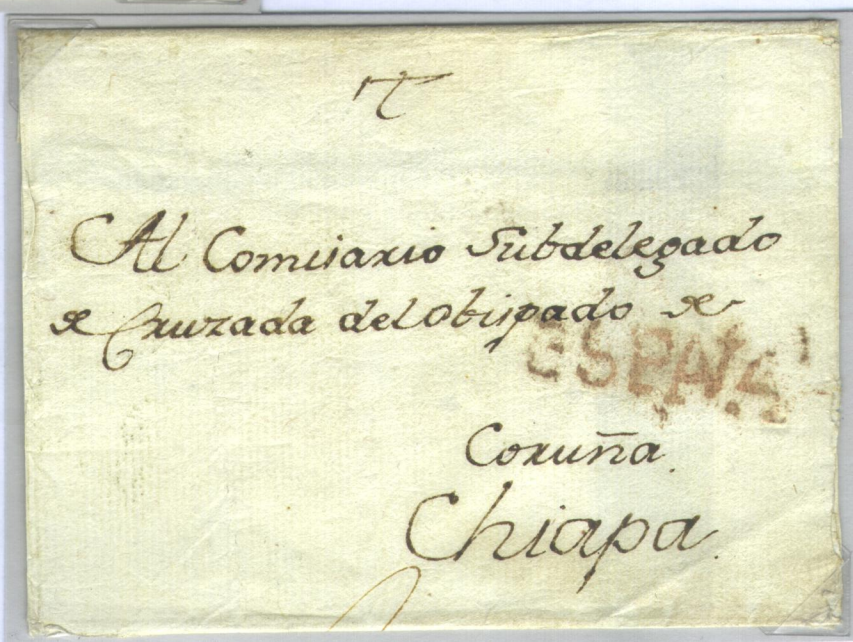 Al Comisario Subdelegado
de Cruzada del Obispado de
ESPAÑA
Coruña.
Chiapa.